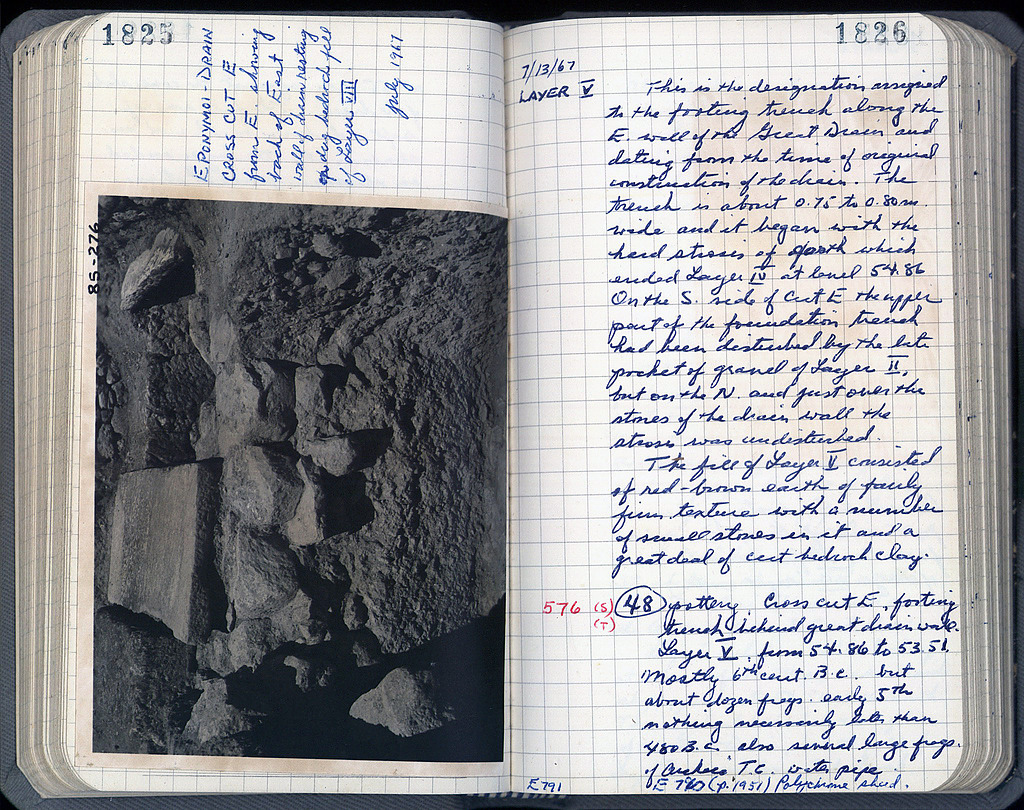 1825
EPONYMOI-DRAIN
CROSS CUT E
from E. showing
back of East
wall of drain resting
on dug bedrock fill
of Layer VIII.
July 1967
85-276
1826
7/13/67
LAYER V
This is the designation assigned
to the footing trench along the
E. wall of the Great Drain and
dating from the time of original
construction of the drain. The
trench is about 0.75 to 0.80 m.
wide and it began with the
hard strosis of earth which
ended Layer IV at level 54.86
On the S. side of Cut E the upper
part of the foundation trench
had been disturbed by the late
pocket of gravel of Layer II,
but on the N. and just over the
stones of the drain wall the
strosis was undisturbed.
The fill of Layer V consisted
of red-brown earth of fairly
firm texture with a number
of small stones in it and a
great deal of cut bedrock clay.
576 (S) 48 pottery. Cross cut E, footing
(T) trench behind great drain wall.
Layer V from 54.86 to 53.51.
Mostly 6th cent. B.C. but
about dozen frags. early 5th
nothing necessarily later than
480 B.C. also several large frags.
of Archaic T.C. water pipe.
E 791
E (p. 1951) Polychrome sherd.